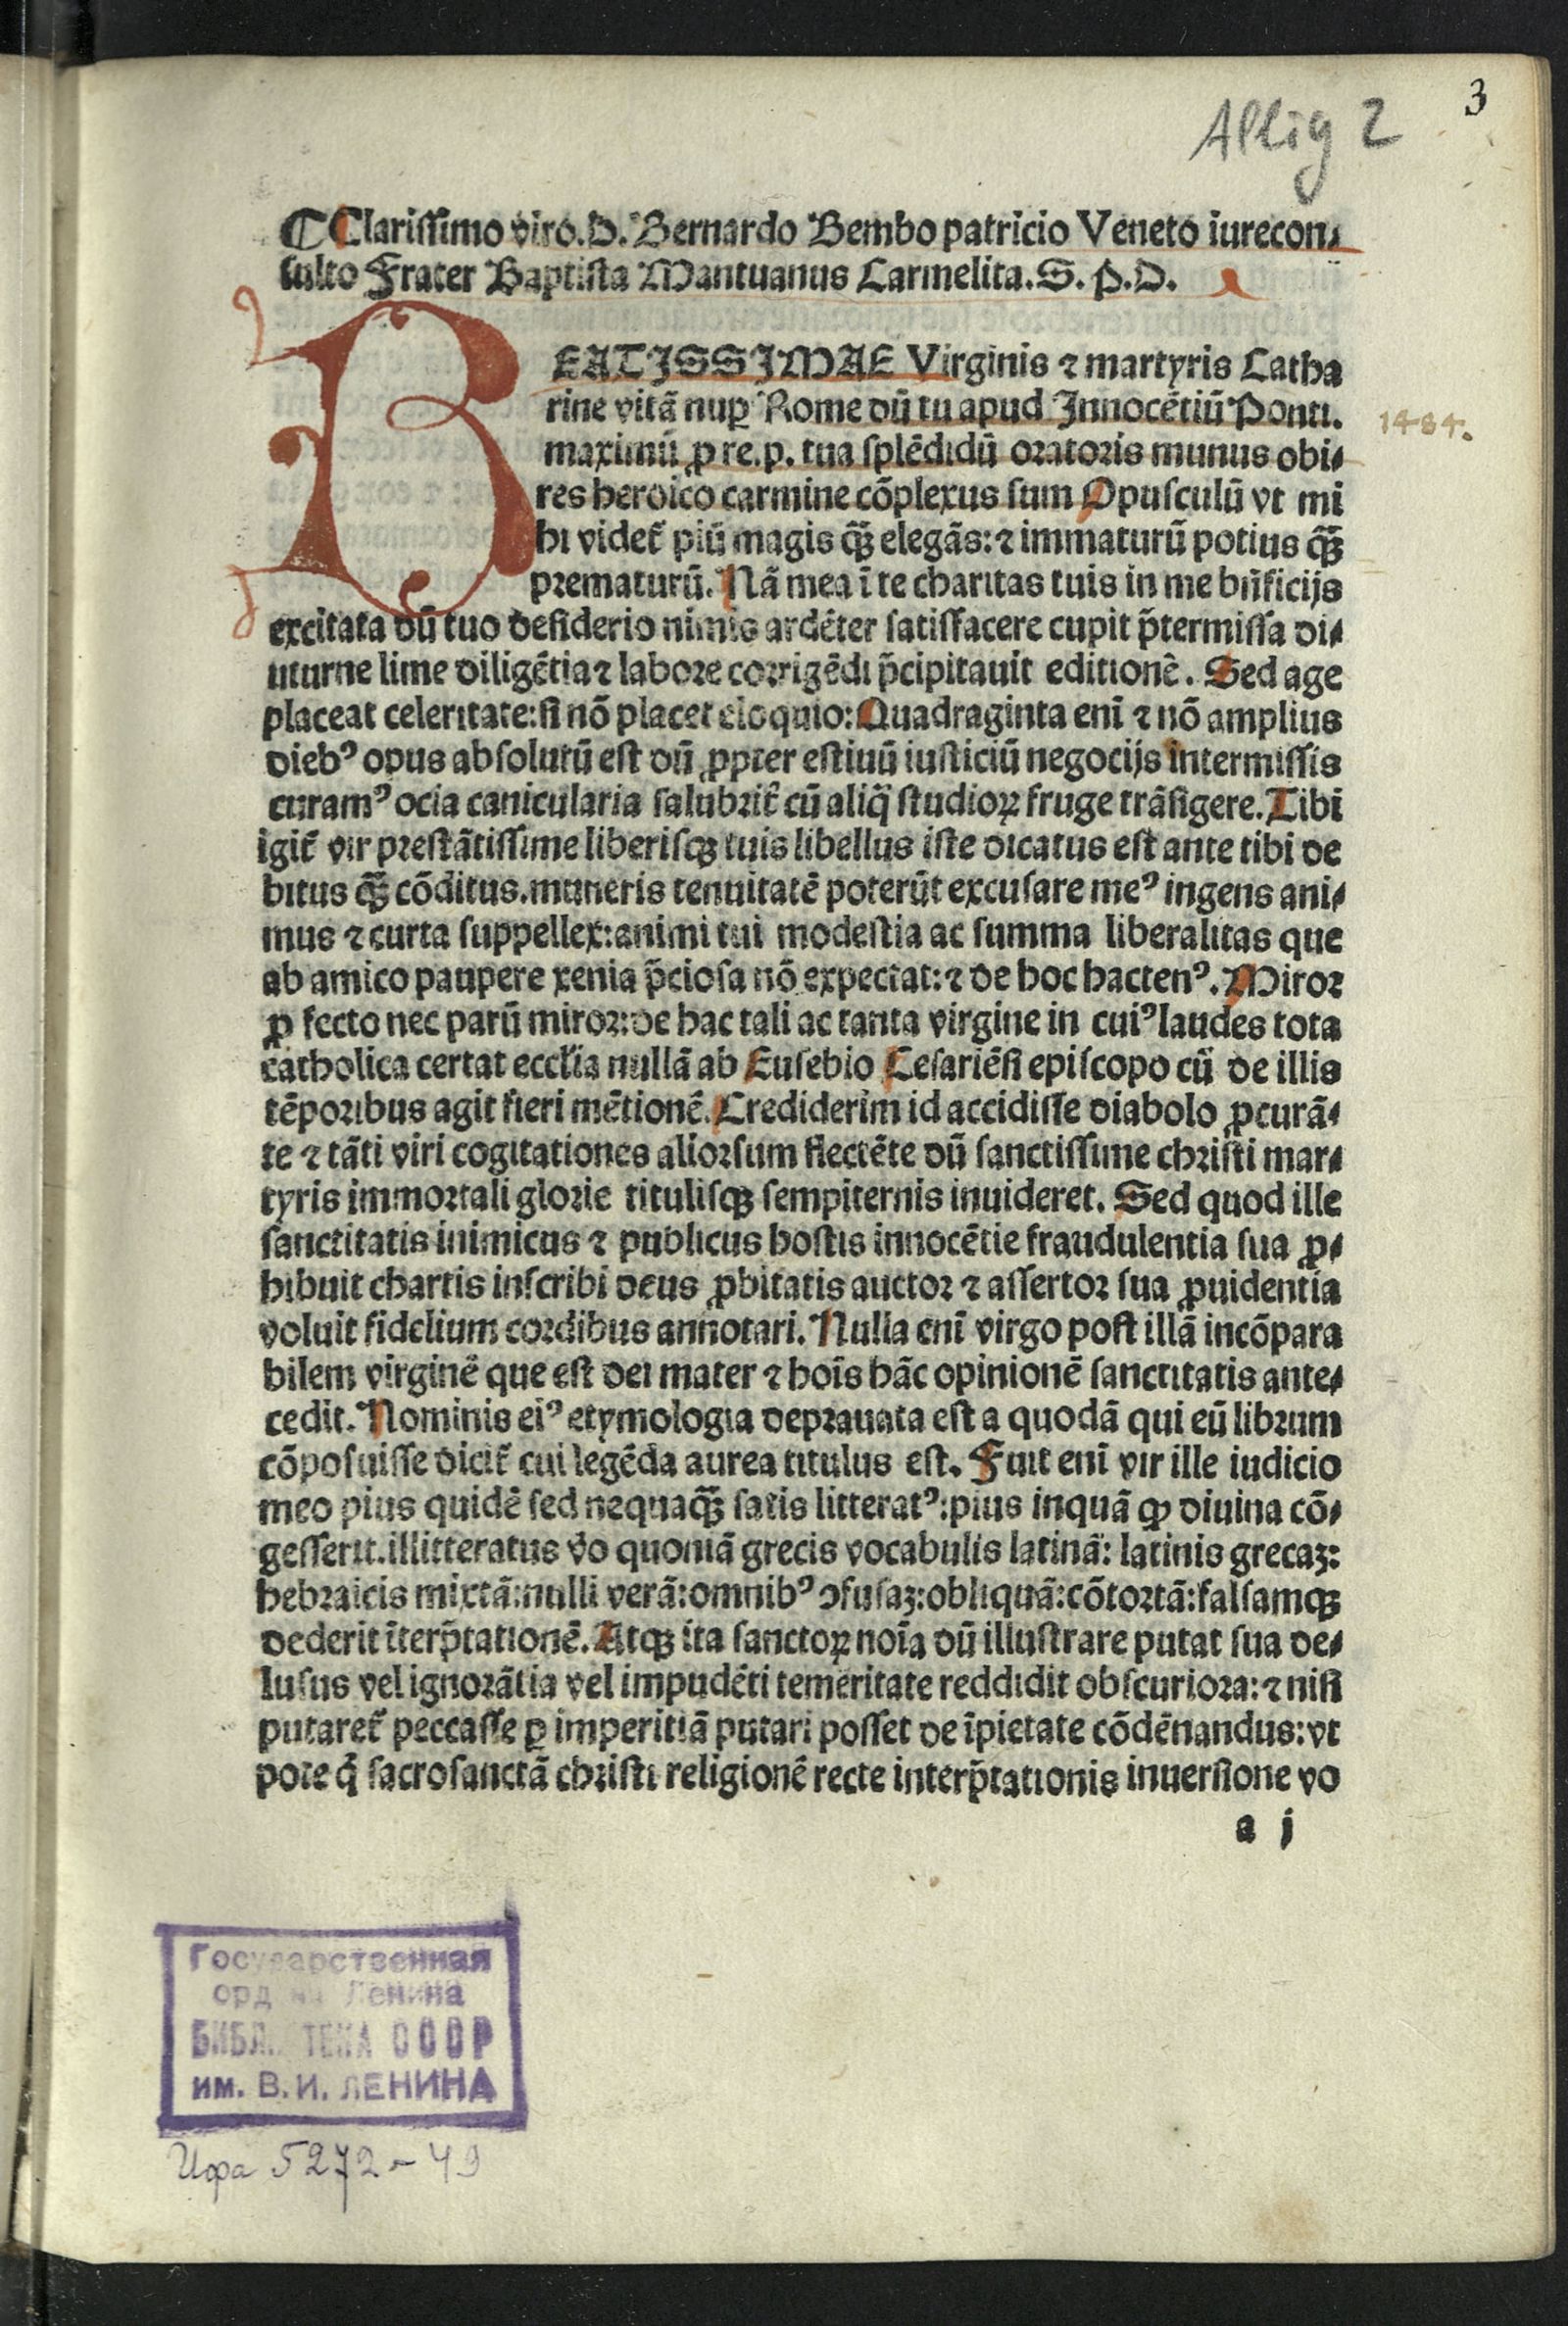 3
Allig 2
⸿ Clarissimo viro.D. Bernardo Bembo patricio Veneto iurecon⸗
sulto Frater Baptista Mantuanus Carmelita.S.P.D.
BEATISSIMAE Virginis ⁊ martyris Catha
rine vitā nuꝑ Rome dū tu apud Innocētiū Ponti.
1484.
maximū ꝓ re.p. tua splēdidū oratoris munus obi⸗
res heroico carmine cōplexus sum Opusculū vt mi
hi videt̄ piū magis q̄ꝫ elegās: ⁊ immaturū potius q̄ꝫ
prematurū. Nā mea ī te charitas tuis in me bn̄ficijs
excitata dū tuo desiderio nimis ardēter satisfacere cupit p̄termissa di⸗
uturne lime diligētia ⁊ labore corrigēdi p̄cipitauit editionē. Sed age
placeat celeritate: si nō placet eloquio: Quadraginta enī ⁊ nō amplius
diebꝰ opus absolutū est dū ꝓpter estiuū iusticiū negocijs intermissis
curamꝰ ocia canicularia salubrit̄ cū aliq̄ studioꝝ fruge trāsigere. Tibi
igit̄ vir prestātissime liberisqꝫ tuis libellus iste dicatus est ante tibi de
bitus q̄ꝫ cōditus. muneris tenuitatē poterūt excusare meꝰ ingens ani⸗
mus ⁊ curta suppellex: animi tui modestia ac summa liberalitas que
ab amico paupere xenia p̄ciosa nō expectat: ⁊ de hoc hactenꝰ. Miror
ꝓ fecto nec parū miror: de hac tali ac tanta virgine in cuiꝰ laudes tota
catholica certat eccl̄ia nullā ab Eusebio Cesariēsi episcopo cū de illis
tēporibus agit fieri mētionē. Crediderim id accidisse diabolo ꝓcurā⸗
te ⁊ tāti viri cogitationes aliorsum flectēte dū sanctissime christi mar⸗
tyris immortali glorie titulisqꝫ sempiternis inuideret. Sed quod ille
sanctitatis inimicus ⁊ publicus hostis innocētie fraudulentia sua ꝓ⸗
hibuit chartis inscribi deus ꝓbitatis auctor ⁊ assertor sua ꝓuidentia
voluit fidelium cordibus annotari. Nulla enī virgo post illā incōpara
bilem virginē que est dei mater ⁊ hoīs hāc opinionē sanctitatis ante⸗
cedit. Nominis eiꝰ etymologia deprauata est a quodā qui eū librum
cōposuisse dicit̄ cui legēda aurea titulus est. Fuit enī vir ille iudicio
meo pius quidē sed nequaq̄ꝫ satis litteratꝰ: pius inquā ꝙ diuina cō⸗
gesserit. illitteratus v̄o quoniā grecis vocabulis latinā: latinis grecaꝫ:
hebraicis mixtā: nulli verā: omnibꝰ ꝯfusaꝫ: obliquā: cōtortā: falsamqꝫ
dederit īterp̄tationē. Atqꝫ ita sanctoꝝ noīa dū illustrare putat sua de⸗
lusus vel ignorātia vel impudēti temeritate reddidit obscuriora: ⁊ nisi
putaret̄ peccasse ꝑ imperitiā putari posset de īpietate cōdēnandus: vt
pote q̄ sacrosanctā christi religionē recte interp̄tationis inuersione vo
a j
Государственная
ордена Ленина
БИБЛИОТЕКА СССР
им. В.И. ЛЕНИНА
Ифа 5272-49